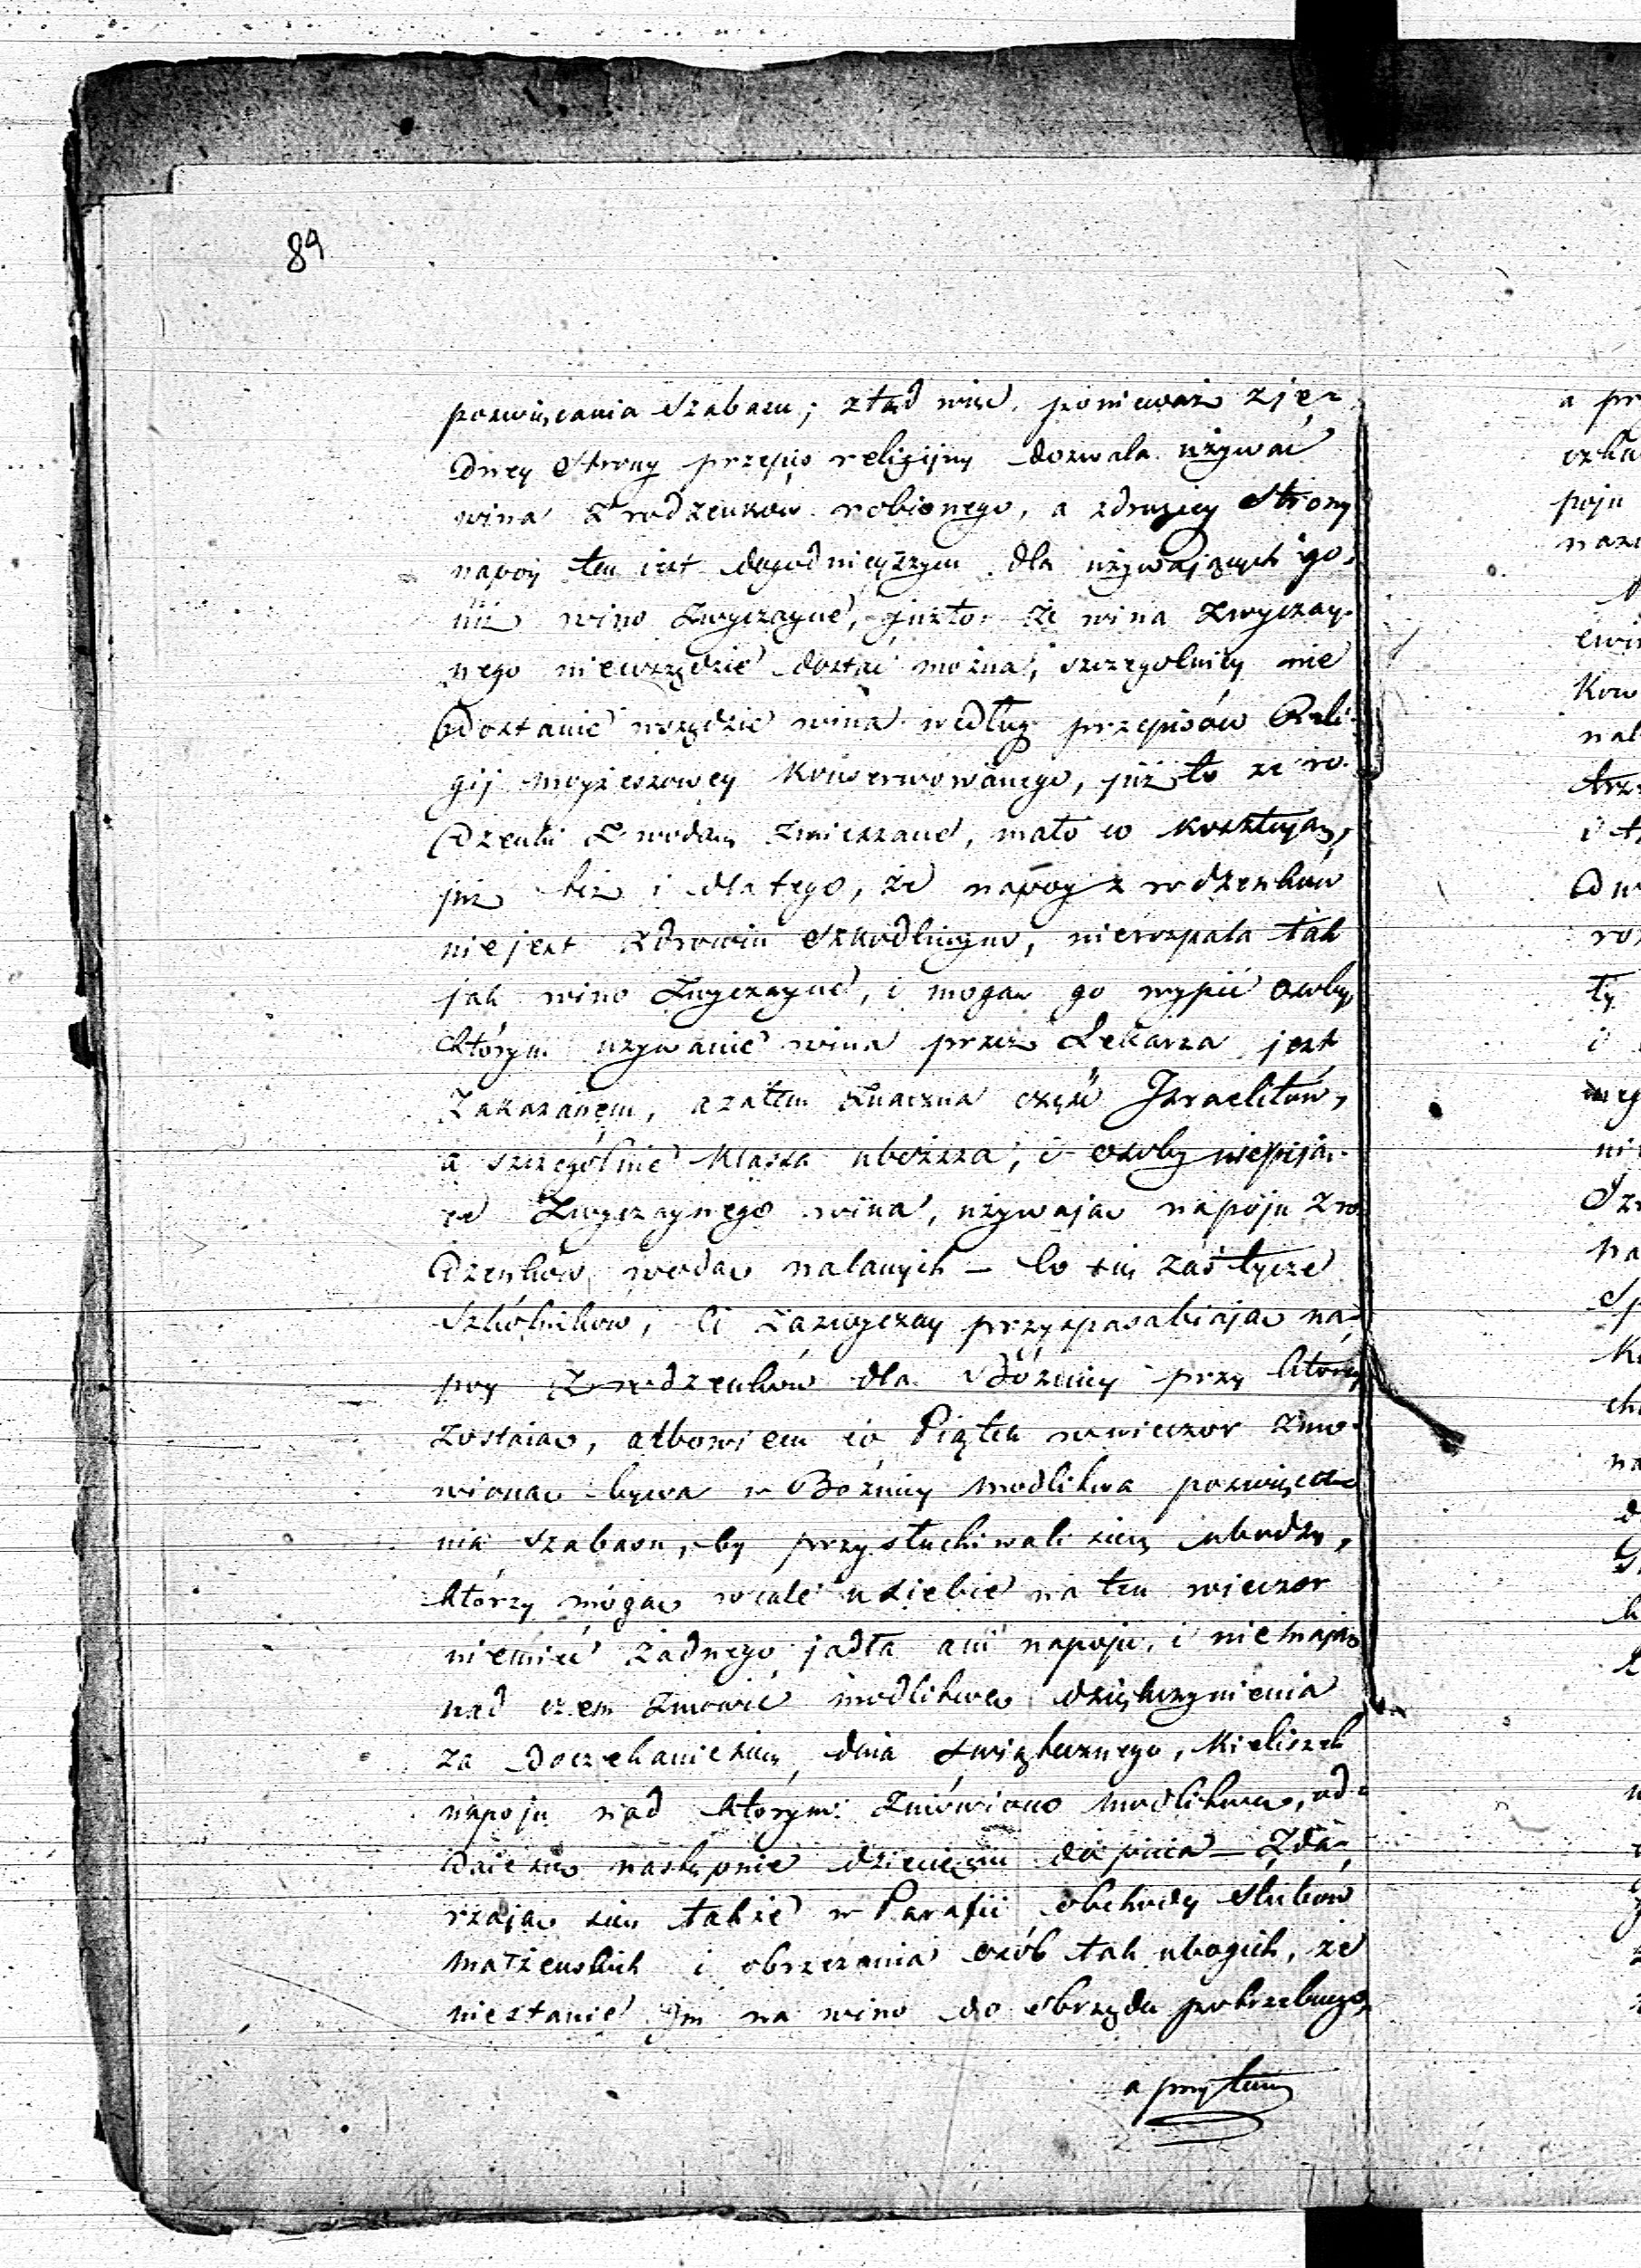 89
poswięcania Szabasu; ztąd więc, ponieważ z je-
dney strony przepis religijny dozwala używać
wina z rodzenków robionego, a zdrugiey strony
napoy ten iest dogodnieyszym dla używających go,
niż wino zwyczayne, już to że wina zwyczay-
nego niewszędzie dostać można, szczegolniey nie
dostanie wszędzie wina według przepisów Reli-
gij mojżeszowey konserwowanego, już to że ro-
dzenki z wodą zmieszane, mało co kosztują,
już też i dla tego, że napoy z rodzenków
niejest zdrowiu szkodliwym, nierozpala tak
jak wino zwyczayne, i mogą go wypić osoby,
którym używanie wina przez Lekarza jest
zakazanem, a zatem znaczna część Izraelitów,
a szczególnie klassa uboższa, i osoby niepija-
ce zwyczaynego wina, używają napoju z ro-
dzenków wodą nalanych – Co się zaś tycze
Szkolników, Ci zazwyczay przysposabiają na-
poy z rodzenków dla Bóżnicy przy którey
zostaią, albowiem co Piątek wwieczor zmo-
wiona bywa w Bóżnicy modlitwa poswięca-
nia Szabasu, by przysłuchiwali się ubodzy,
którzy mogą wcale u siebie na ten wieczor
niemieć żadnego jadła ani napoju, i niemają
nad czem zmowić modlitwę dziękczynienia
za doczekanie się dnia świątecznego, Kieliszek
napoju nad którym zmówiono modlitwę, od-
daie się następnie dziecięciu do picia – Zda-
rzają się także w Parafii obchody slubów
małżenskich i obrzezania osób tak ubogich, że
niestanie Im na wino do obrzędu potrzebnego,
a przytem